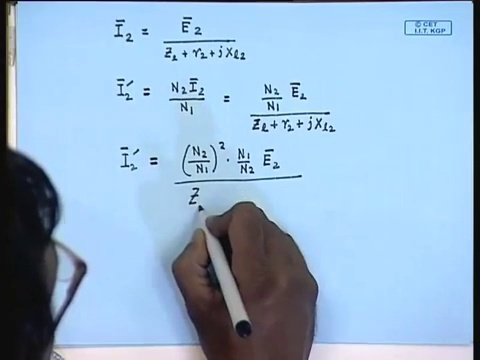 © CET
I.I.T. KGP
Ī₂ = Ē₂ / (Z₂ + r₂ + jx_l₂)
Ī₂′ = N₂Ī₂ / N₁ = (N₂/N₁ Ē₂) / (Z₂ + r₂ + jx_l₂)
Ī₂′ = (N₂/N₁)² · N₁/N₂ Ē₂ / Z